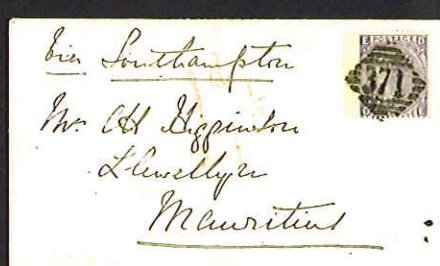 via Southampton
POSTAGE
371
Mrs CH Higginson
Llewellyn
Mauritius